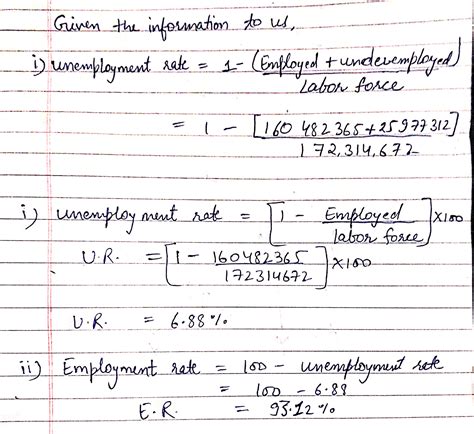 Given the information to us,
i) unemployment rate = 1 - (Employed + underemployed)
labor force
= 1 - [160 482 365 + 25977312]
172,314,672
i) unemployment rate = [1 - Employed / labor force] x100
U.R. = [1 - 160482365 / 172314672] x100
U.R. = 6.88%
ii) Employment rate = 100 - unemployment rate
= 100 - 6.88
E.R. = 93.12%